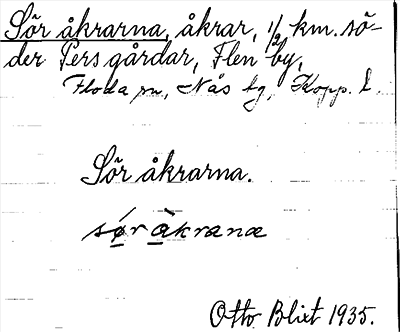 Sör åkrarna, åkrar, 1/2 km. sö-
der Pers gårdar, Flen by,
Floda sn, Nås tg, Kopp. l.
Sör åkrarna.
sør àkrana
Otto Blixt 1935.